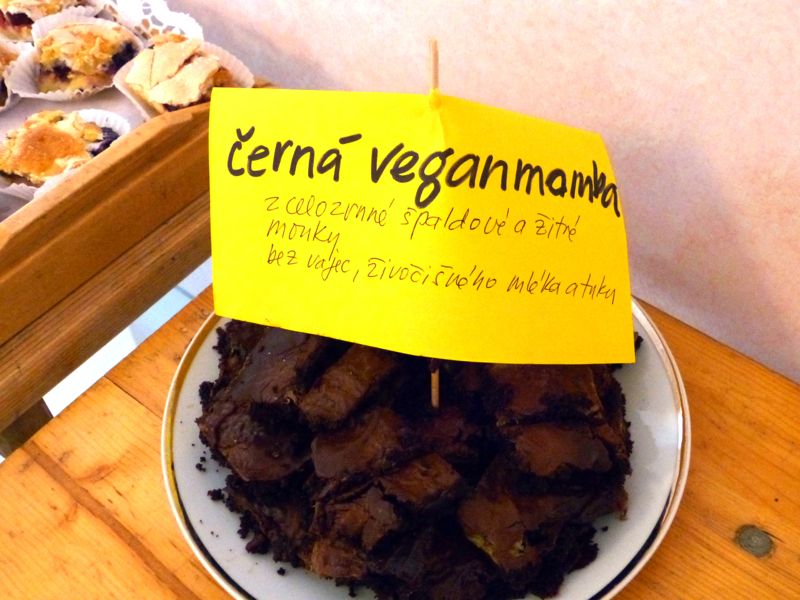 černá veganmamba
z celozrnné špaldové a žitné
mouky
bez vajec, živočišného mléka a tuku